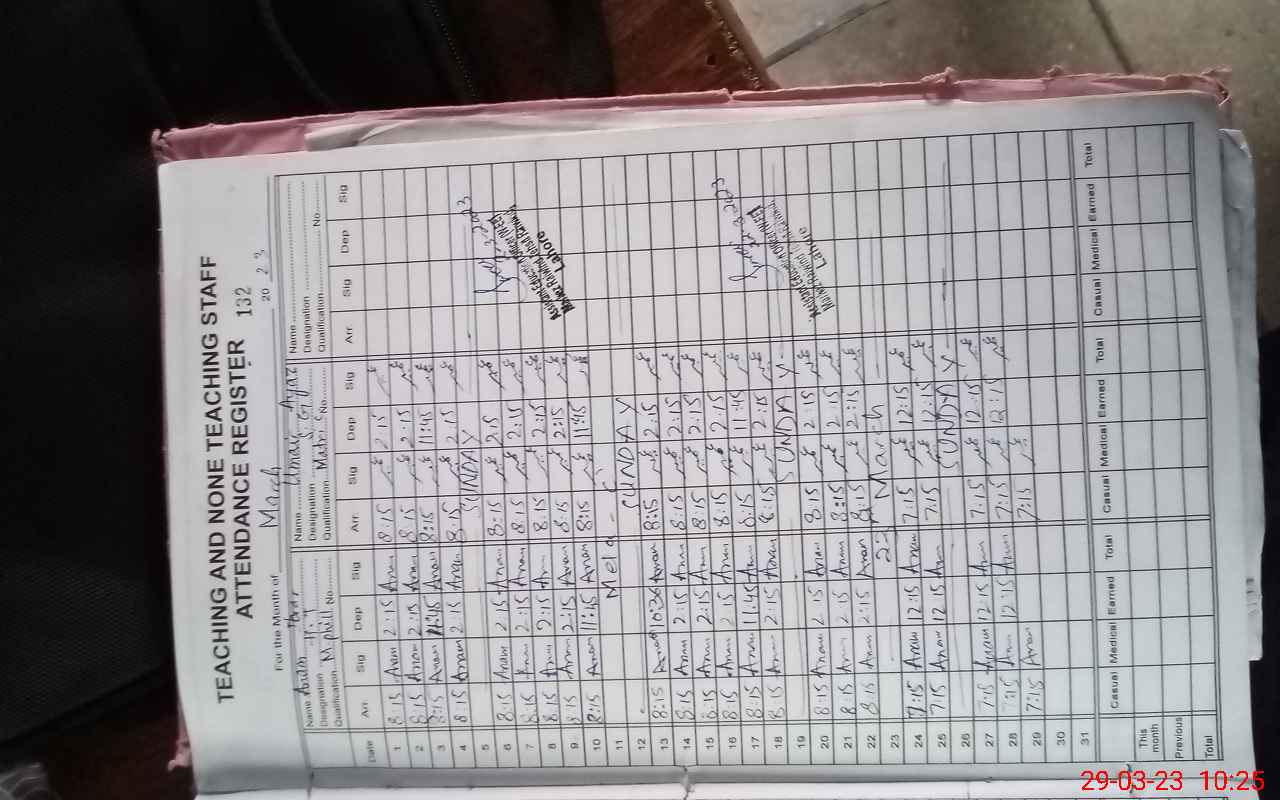 TEACHING AND NONE TEACHING STAFF
ATTENDANCE REGISTER 132
For the Month of March 2023
Name Name Umair Ayaz Name
Designation Designation S.G Designation
Qualification M phill No. Qualification Matric No. Qualification No.
Date Arr. Sig Dep Sig Arr. Sig Dep Sig Arr. Sig Dep Sig
1 8:15 Anam 2:15 Anam 8:15 2:15
2 8:15 Anam 2:15 Anam 8:15 2:15
3 8:15 Anam 11:45 Anam 8:15 11:45
4 8:15 Anam 2:15 Anam 8:15 2:15
5 SUNDAY
6 8:15 Anam 2:15 Anam 8:15 2:15
7 8:15 Anam 2:15 Anam 8:15 2:15
8 8:15 Anam 2:15 Anam 8:15 2:15
9 8:15 Anam 2:15 Anam 8:15 2:15
10 8:15 Anam 11:45 Anam 8:15 11:45
11 Mela
12 SUNDAY
13 8:15 Anam 10:36 Anam 8:15 2:15
14 8:15 Anam 2:15 Anam 8:15 2:15
15 8:15 Anam 2:15 Anam 8:15 2:15
16 8:15 Anam 2:15 Anam 8:15 2:15
17 8:15 Anam 11:45 Anam 8:15 11:45
18 8:15 Anam 2:15 Anam 8:15 2:15
19 SUNDAY
20 8:15 Anam 2:15 Anam 8:15 2:15
21 8:15 Anam 2:15 Anam 8:15 2:15
22 8:15 Anam 2:15 Anam 8:15 2:15
23 23 March
24 7:15 Anam 12:15 Anam 7:15 12:15
25 7:15 Anam 12:15 Anam 7:15 12:15
26 SUNDAY
27 7:15 Anam 12:15 Anam 7:15 12:15
28 7:15 Anam 12:15 Anam 7:15 12:15
29 7:15 Anam 7:15
30
31
Casual Medical Earned Total Casual Medical Earned Total Casual Medical Earned Total
This month
Previous
Total
Assistant Education Officer
Lahore
Assistant Education Officer
Lahore
29-03-23 10:25